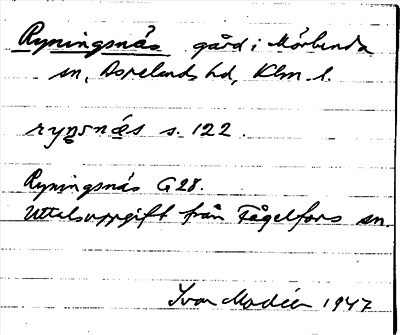 Ryningsnäs gård i Mörlunda
sn, Aspelands hd, Klm. l.
ryṉsnäs s. 122.
Ryningsnäs G 28.
Uttalsuppgift från Fågelfors sn.
Ivar Modéer 1947